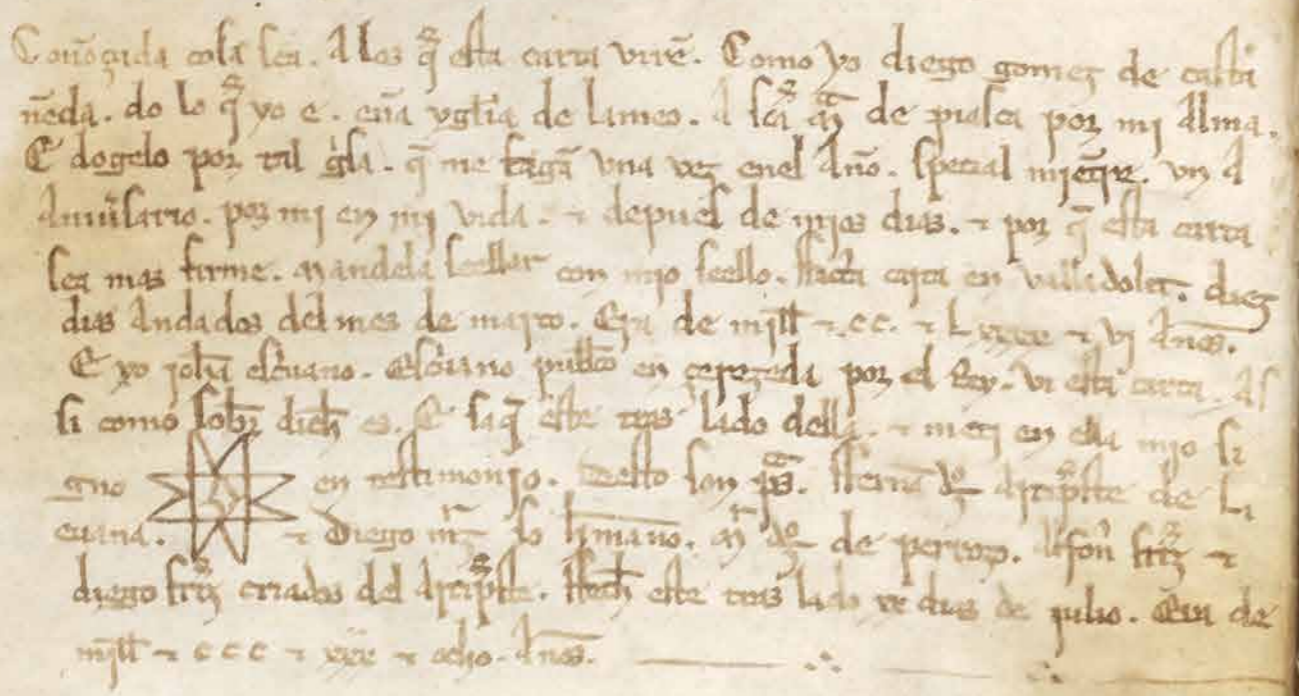 Conoçuda cosa sea. A los q̄ esta carta uirē. Como yo diego gomez de casta
ñeda. do lo q̄ yo e. ena yglia de lameo. A sca M̄ de piasca por mi Alma.
E dogelo por tal gisa. q̄ me fagā una uez enel Año. special miētre. un A
Aniuˀsario. por mi en mi uida. ⁊ depues de mios dias. ⁊ por q̄ esta carta
sea mas firme. Mandela seellar con mio seello. ffacta carta en ualladolit. diez
dias Andados del mes de março. Era de mill ⁊ .cc. ⁊ L xxxx ⁊ vj Años.
E yo johā escˀuano. escˀuano publico en çereçeda por el Rey. ui esta carta. As
si como sobr dich es. E saq̄ este tras lado della. ⁊ meti en ella mio si
gno en testimonjo. desto son ps̄. fferrā arciprˀste de Li
euana. ⁊ Diego mr̄z so hrmano. de perrozo. Alfonˀ frrz ⁊
diego frrz criados del Arciprˀste. ffech este tras lado xx dias de julio. Era de
mill ⁊ c c c ⁊ xxx ⁊ ocho. Años.